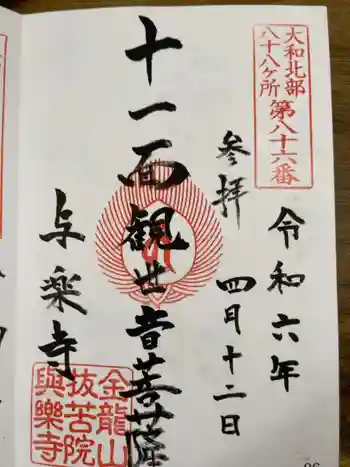 大和北部
八十八ケ所 第八十六番
令和六年
参拝 四月十二日
十一面観世音菩薩
与楽寺
金龍山
抜苦院
與樂寺